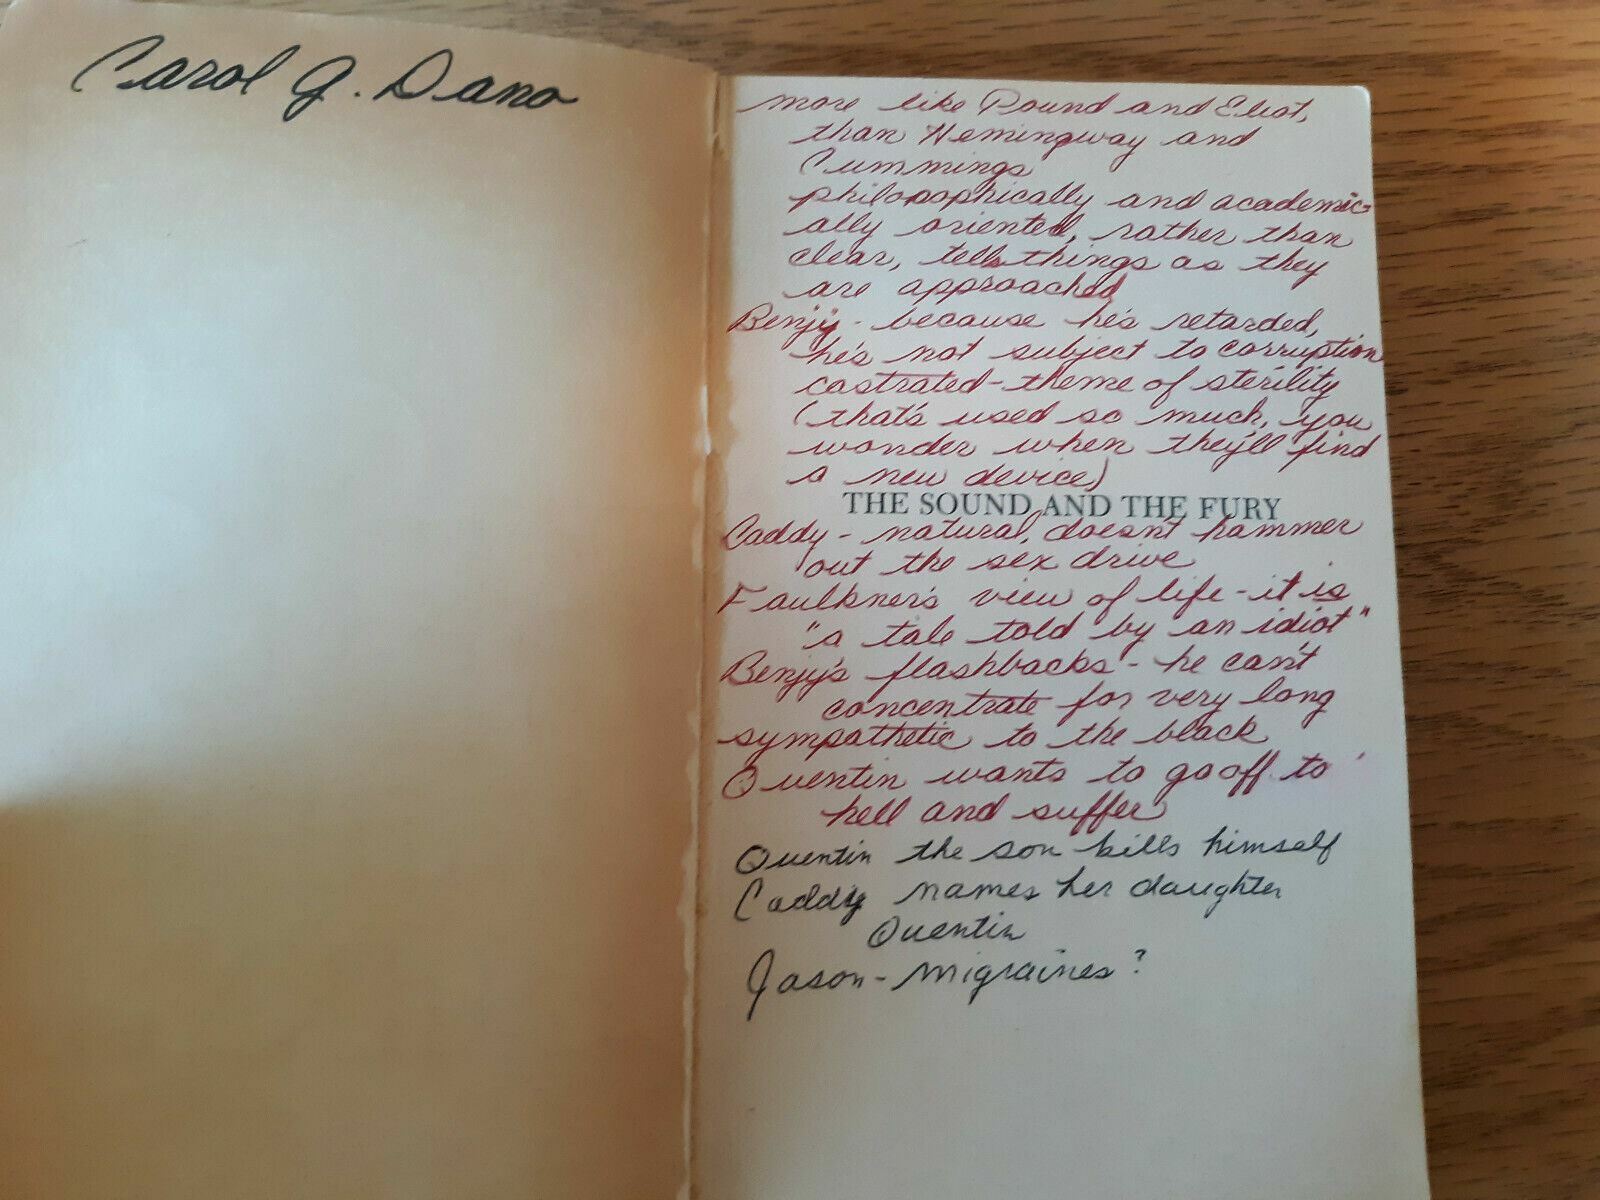 Carol G. Dano
more like Pound and Eliot,
than Hemingway and
Cummings
philosophically and academic-
ally oriented, rather than
clear, tells things as they
are approached
Benjy - because he's retarded,
he's not subject to corruption
castrated - theme of sterility
(that's used so much, you
wonder when they'll find
a new device)
THE SOUND AND THE FURY
Caddy - natural, doesn't hammer
out the sex drive
Faulkner's view of life - it is
"a tale told by an idiot"
Benjy's flashbacks - he can't
concentrate for very long
sympathetic to the black
Quentin wants to go off to
hell and suffer
Quentin the son kills himself
Caddy names her daughter
Quentin
Jason - migraines?